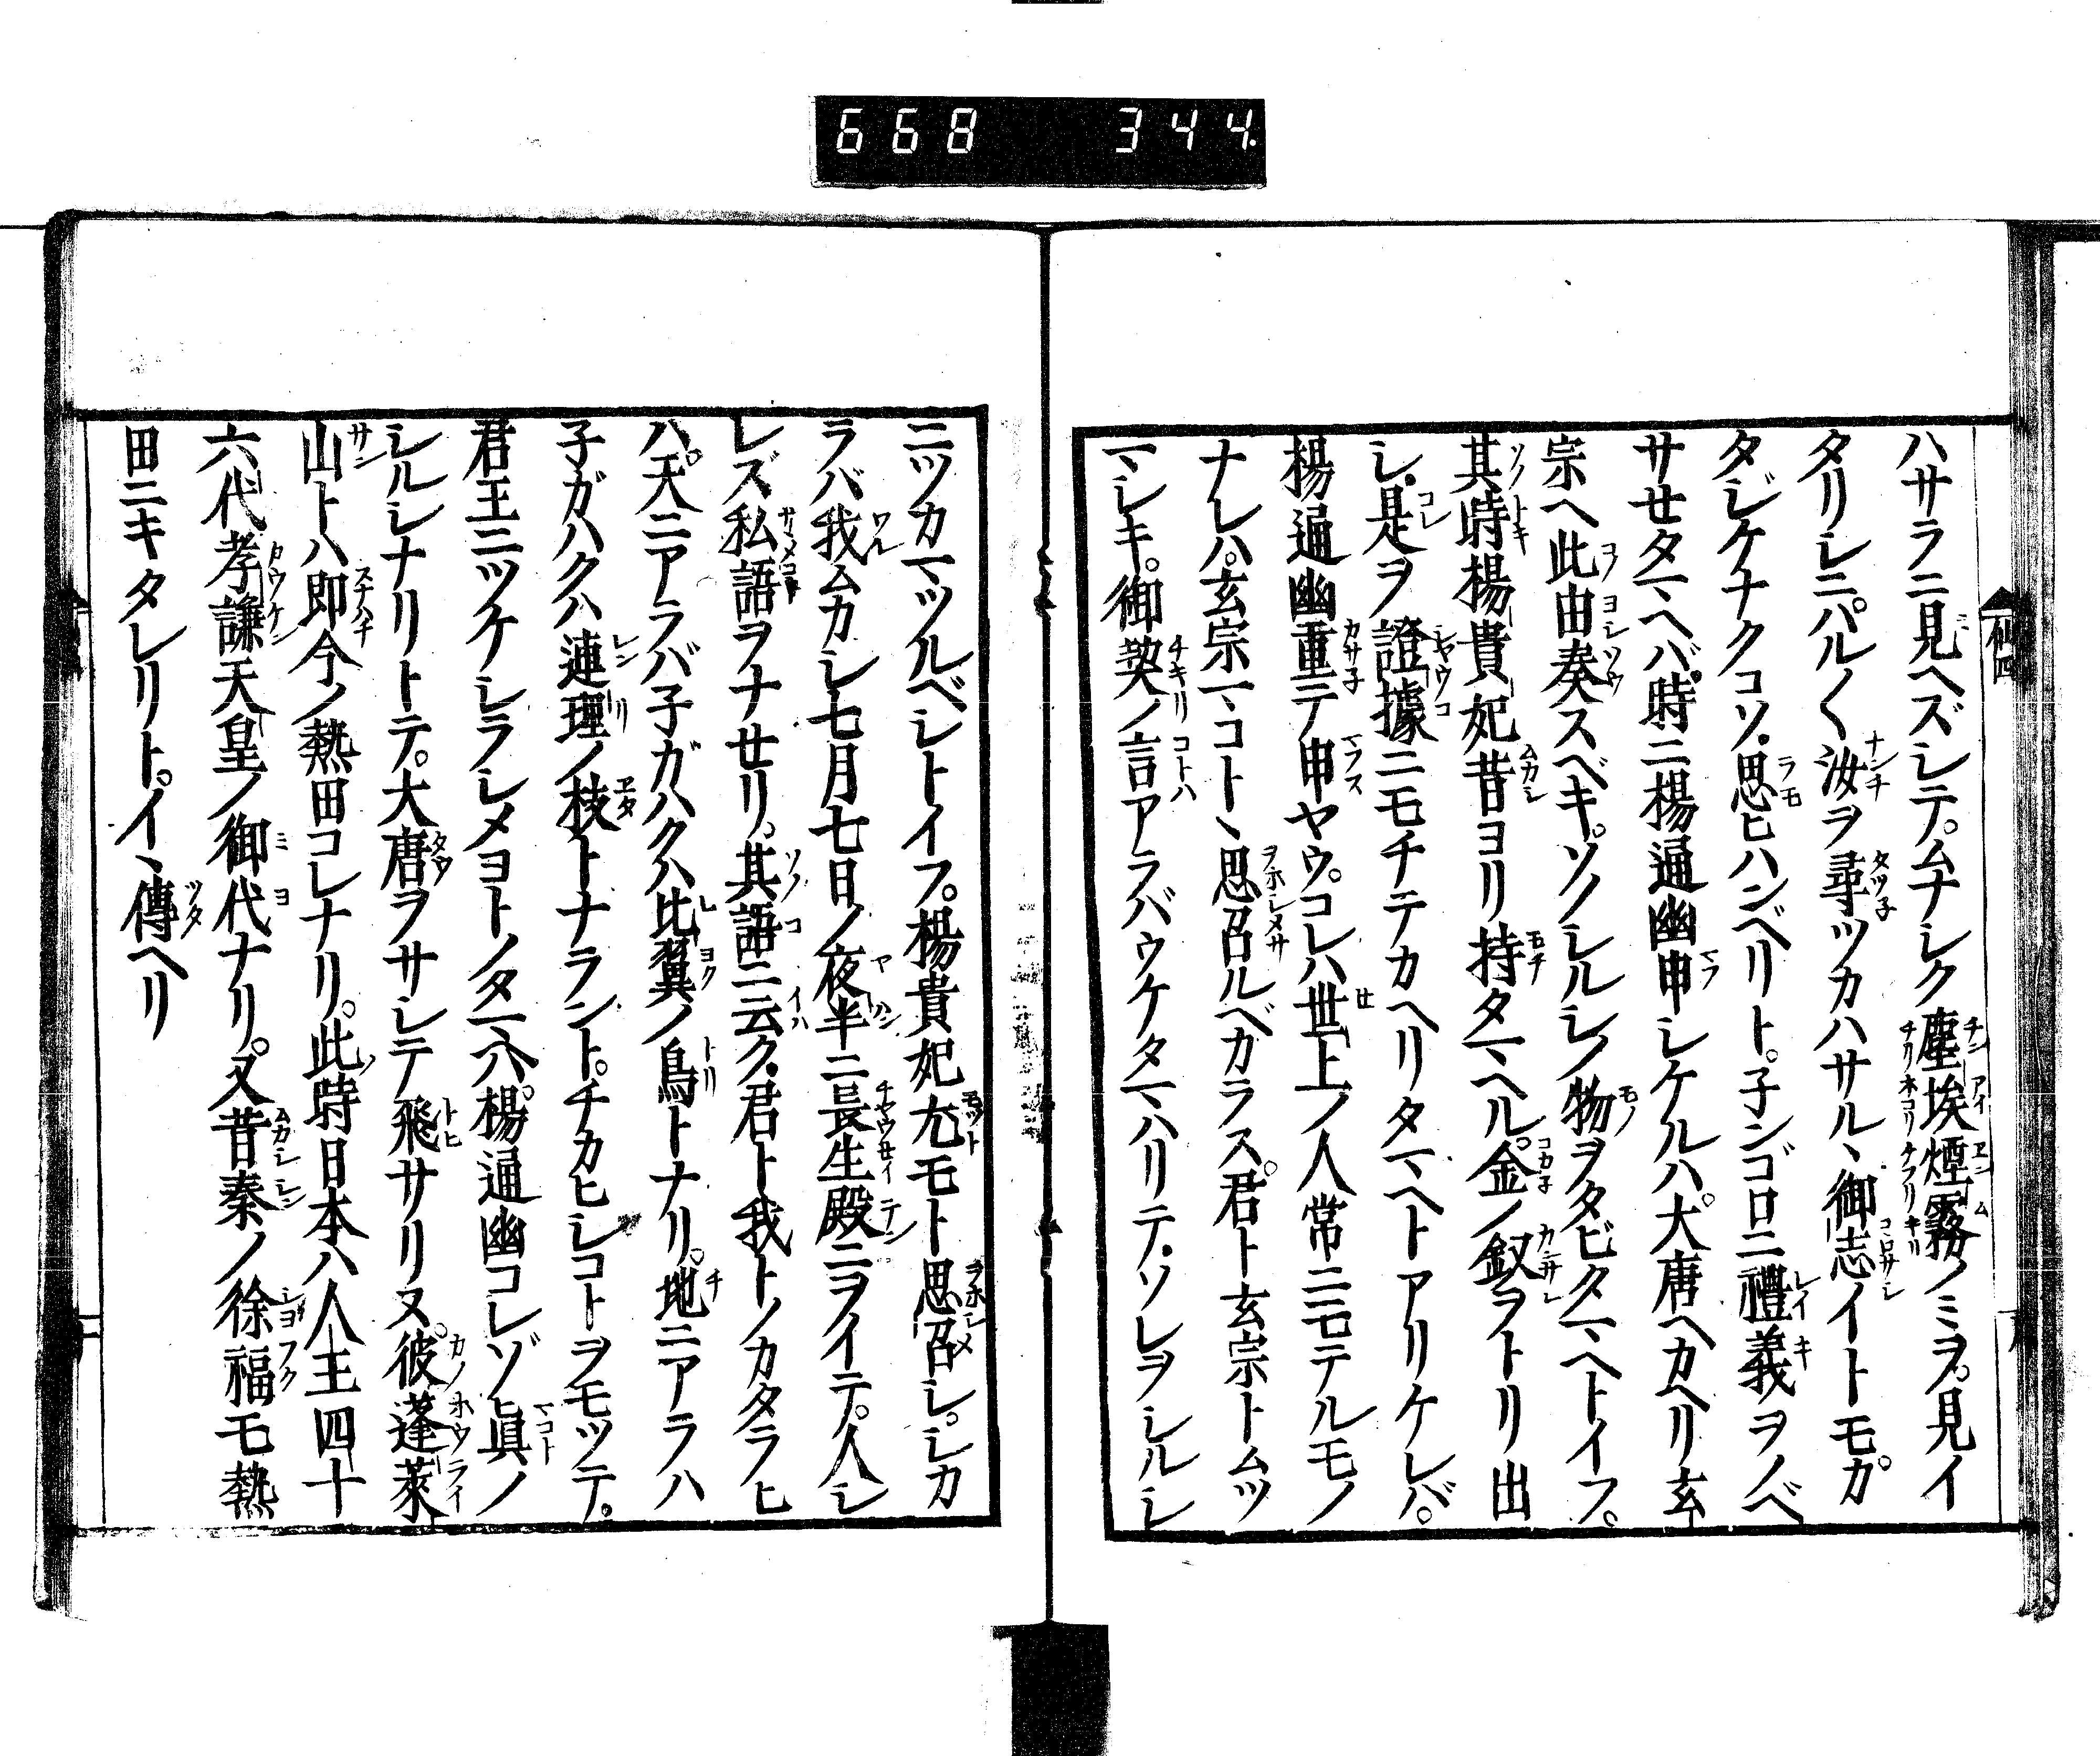 668 344
仙四
ハサラニ見ヘズシテ。ムナシク塵埃煙霧ノミヲ。見イ
タリシニ。ハル〱汝ヲ尋ツカハサル丶御志イトモ。カ
タジケナクコソ。思ヒハンベリト。子ンゴロニ禮義ヲノベ
サセタマヘバ。時ニ楊通幽申シケルハ。大唐ヘカヘリ玄
宗ヘ此由奏スベキ。ソノシルシノ物ヲタビタマヘトイフ。
其時楊貴妃昔ヨリ持タマヘル。金ノ釵ヲトリ出
シ。是ヲ證據ニモチテカヘリタマヘトアリケレバ。
楊通幽重テ申ヤウ。コレハ世上ノ人常ニモテルモノ
ナレハ。玄宗マコト丶思召ルベカラス。君ト玄宗トムツ
マシキ。御契ノ言アラバウケタマハリテ。ソレヲシルシ
ニツカマツルベシトイフ。楊貴妃尤モト思召シ。シカ
ラバ我ムカシ七月七日ノ夜半ニ長生殿ニヲイテ。人シ
レズ私語ヲナセリ。其語ニ云ク。君ト我トノカタラヒ
ハ。天ニアラバ子ガハクハ比翼ノ鳥トナリ。地ニアラハ
子ガハクハ連理ノ枝トナラント。チカヒシコトヲモツテ。
君王ニツケシラシメヨトノタマヘハ。楊通幽コレゾ眞ノ
シルシナリトテ。大唐ヲサシテ飛サリヌ。彼蓬萊
山トハ即今ノ熱田コレナリ。此時日本ハ人王四十
六代孝謙天皇ノ御代ナリ。又昔秦ノ徐福モ熱
田ニキタレリト。イ丶傳ヘリ